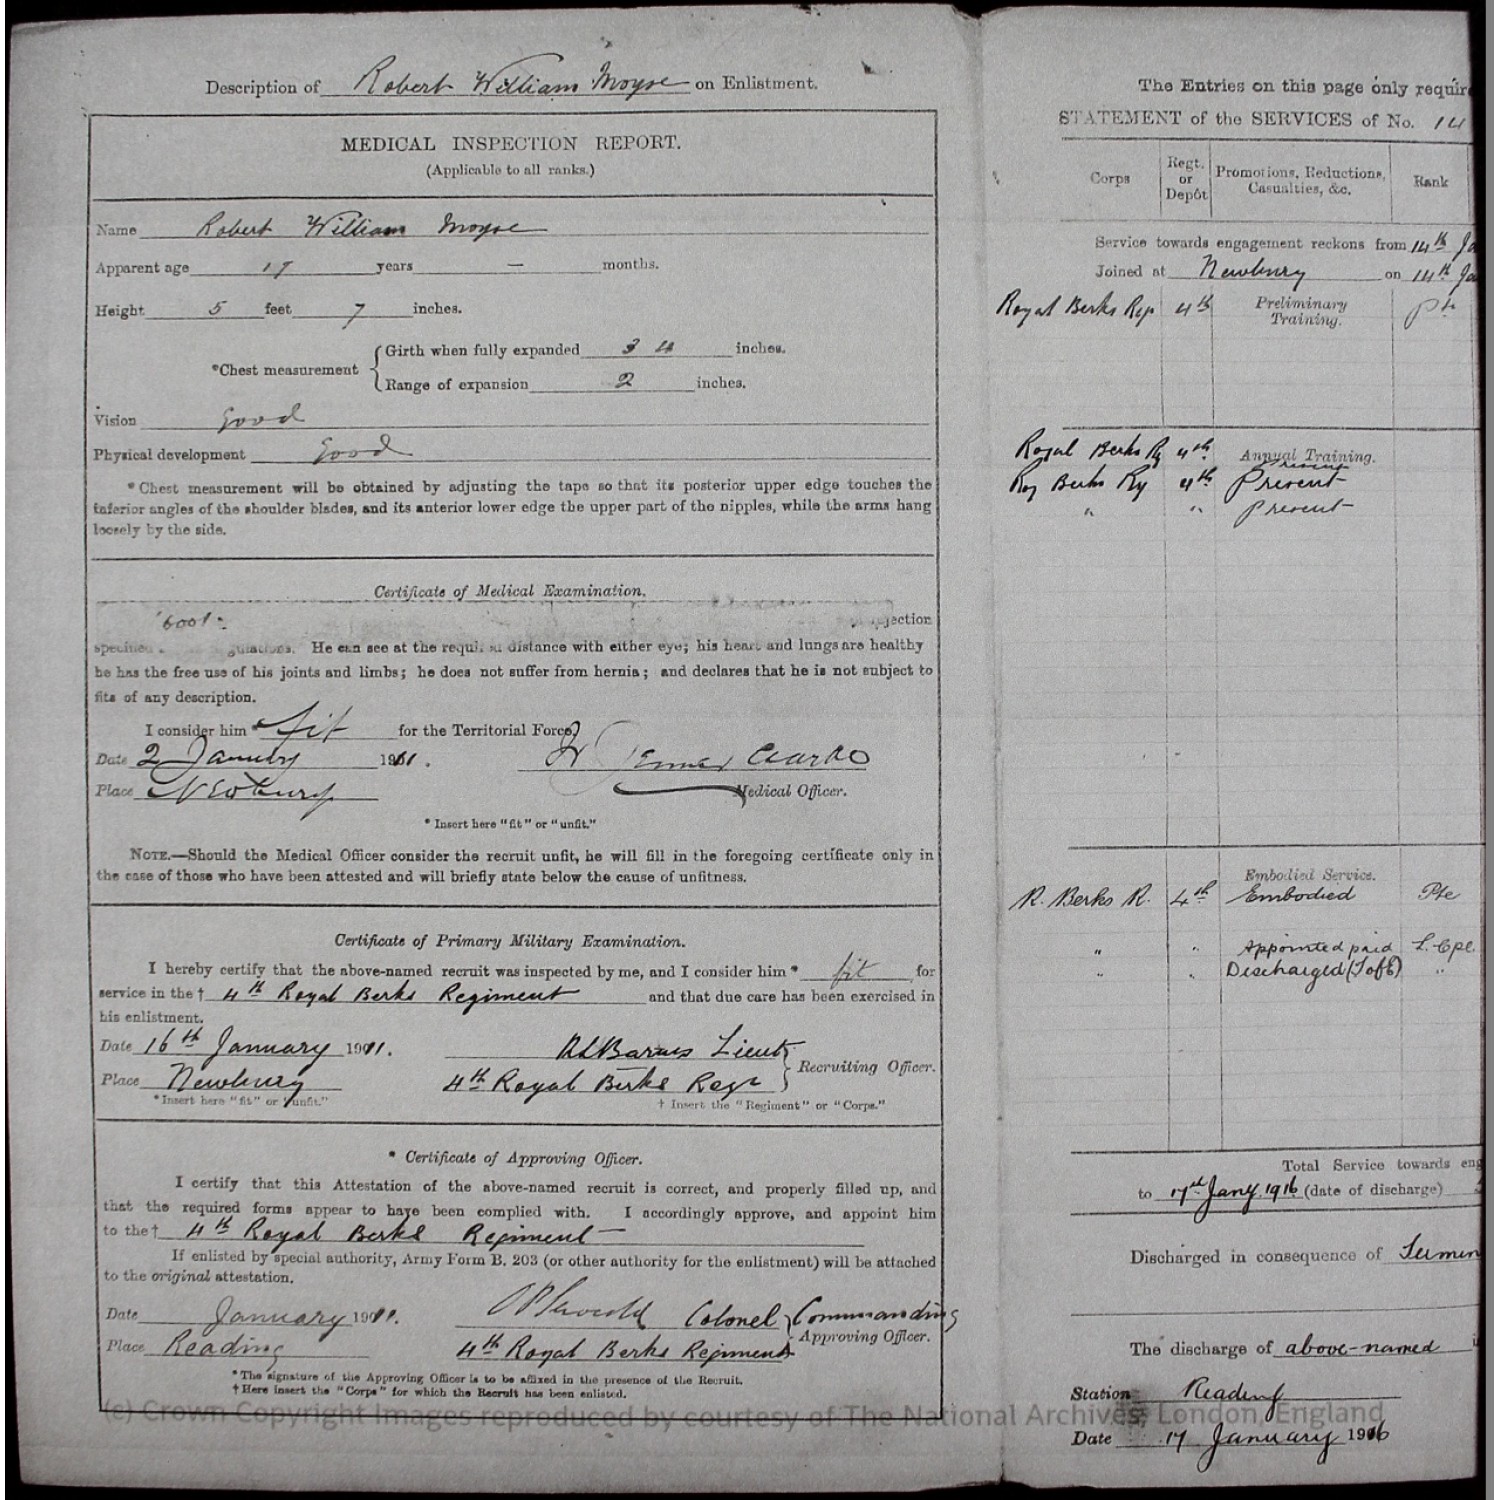 Description of Robert William Moyse on Enlistment.
MEDICAL INSPECTION REPORT.
(Applicable to all ranks.)
Name Robert William Moyse
Apparent age 17 years — months.
Height 5 feet 7 inches.
*Chest measurement { Girth when fully expanded 34 inches.
Range of expansion 2 inches.
Vision Good
Physical development Good
* Chest measurement will be obtained by adjusting the tape so that its posterior upper edge touches the
inferior angles of the shoulder blades, and its anterior lower edge the upper part of the nipples, while the arms hang
loosely by the side.
Certificate of Medical Examination.
He can see at the required distance with either eye; his heart and lungs are healthy
he has the free use of his joints and limbs; he does not suffer from hernia; and declares that he is not subject to
fits of any description.
I consider him * fit for the Territorial Force.
Date 2 January 1911.
Place Newbury
Medical Officer.
* Insert here "fit" or "unfit."
NOTE.—Should the Medical Officer consider the recruit unfit, he will fill in the foregoing certificate only in
the case of those who have been attested and will briefly state below the cause of unfitness.
Certificate of Primary Military Examination.
I hereby certify that the above-named recruit was inspected by me, and I consider him * fit for
service in the † 4th Royal Berks Regiment and that due care has been exercised in
his enlistment.
Date 16th January 1911. Barnes Lieut
Place Newbury 4th Royal Berks Regt } Recruiting Officer.
* Insert here "fit" or "unfit." † Insert the "Regiment" or "Corps."
* Certificate of Approving Officer.
I certify that this Attestation of the above-named recruit is correct, and properly filled up, and
that the required forms appear to have been complied with. I accordingly approve, and appoint him
to the † 4th Royal Berks Regiment —
If enlisted by special authority, Army Form B. 203 (or other authority for the enlistment) will be attached
to the original attestation.
Date January 1911. Colonel } Commanding
Place Reading 4th Royal Berks Regiment Approving Officer.
* The signature of the Approving Officer is to be affixed in the presence of the Recruit.
† Here insert the "Corps" for which the Recruit has been enlisted.
The Entries on this page only requir
STATEMENT of the SERVICES of No. 14
Corps
Regt. or Depôt
Promotions, Reductions, Casualties, &c.
Rank
Service towards engagement reckons from 14th Ja
Joined at Newbury on 14th Ja
Royal Berks Reg 4th Preliminary Training. Pte
Royal Berks Rg 4th Annual Training.
Present
Roy Berks Rg 4th Present
" " Present
Embodied Service.
R. Berks R. 4th Embodied Pte
" " Appointed paid L. Cpl.
" " Discharged (T of E) "
Total Service towards eng
to 17th Jany. 1916 (date of discharge)
Discharged in consequence of Termin
The discharge of above-named
Station Reading
Date 17 January 1916
(c) Crown Copyright Images reproduced by courtesy of The National Archives, London, England